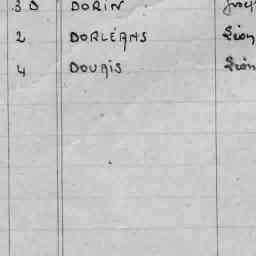 30 DORIN
2 DORLÉANS Léon
4 DOUAIS Léon